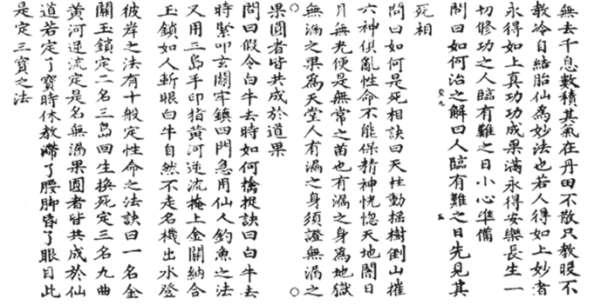 無去千息數積其氣在丹田不散只教吸不
教冷自結胎仙為妙法也若人得如上妙者
永得如上真功功成果滿永得安樂長生一
切修功之人臨有難之日小心準備
問曰如何治之解曰人臨有難之日先見其
死相
問曰如何是死相訣曰天柱動搖樹倒山摧
六神俱亂性命不能保精神恍惚天地闇日
月無光便是無常之苗也有漏之身為地獄
無漏之果為天堂人有漏之身須證無漏之
果圓者皆共成於道果
問曰假令白牛去時如何擒捉訣曰白牛去
時緊叩玄關牢鎮四門急用仙人釣魚之法
又用三島手印指黃河逆流掩上金關納合
玉鎖如人斬眼白牛自然不走名機出水登
彼岸之法有十般定性命之法訣曰一名金
關玉鎖定二名三島回生換死定三名九曲
黃河逆流定是名無漏果圓者皆共成於仙
道若定了寶時休教滯了腰脚昏了眼目此
是定三寶之法